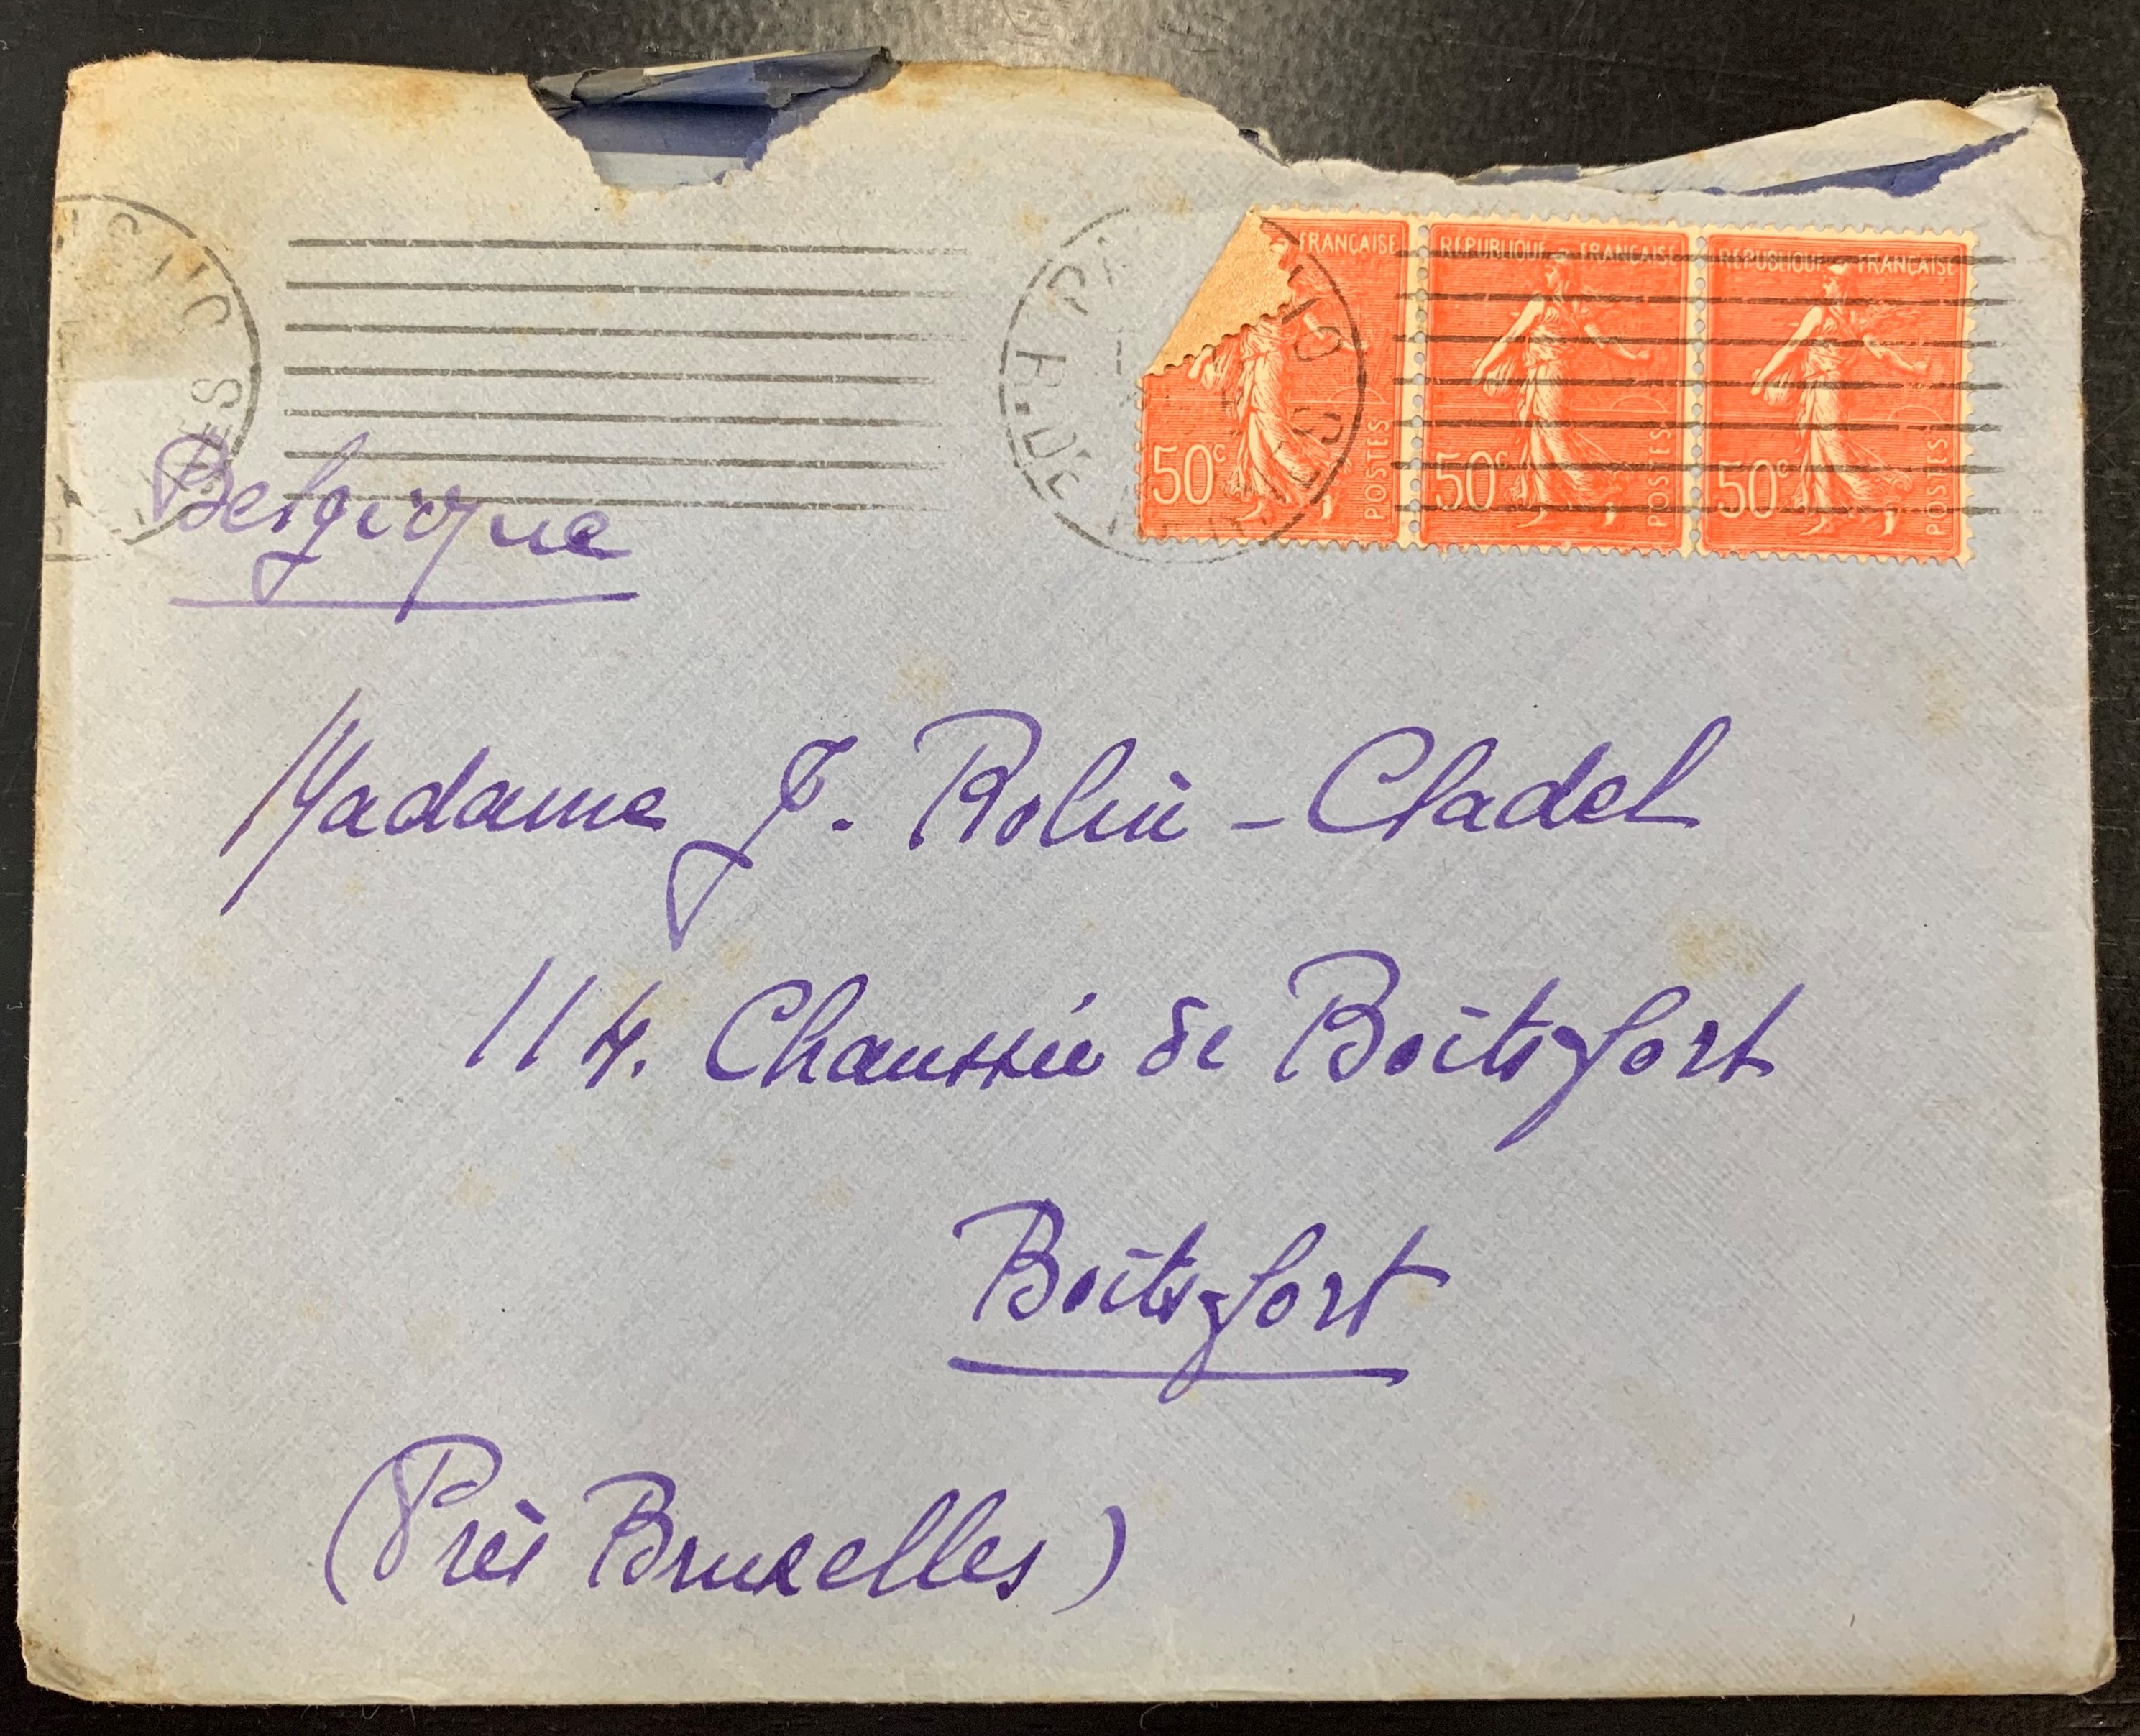 FRANÇAISE REPUBLIQUE FRANÇAISE REPUBLIQUE FRANÇAISE
50c POSTES 50c POSTES 50c POSTES
Belgique
Madame J. Rolin - Cladel
114. Chaussée de Boitsfort
Boitsfort
(Près Bruxelles)